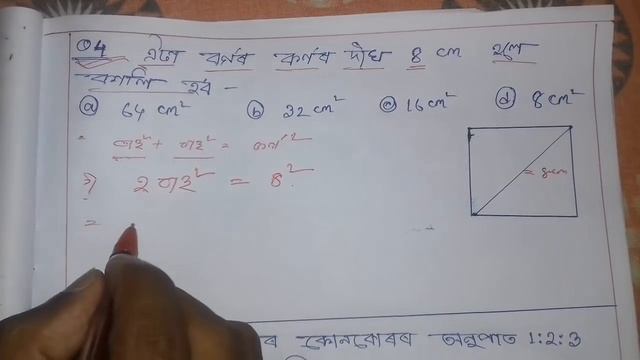 04 এটা বৰ্গৰ কৰ্ণৰ দৈৰ্ঘ 8 cm হলে
বৰ্গকালি হব -
ⓐ 64 cm² ⓑ 32 cm² ⓒ 16 cm² ⓓ 8 cm²
বাহু² + বাহু² = কৰ্ণ²
2 বাহু² = 8²
= 8cm
=
কোনবোৰৰ অনুপাত 1:2:3